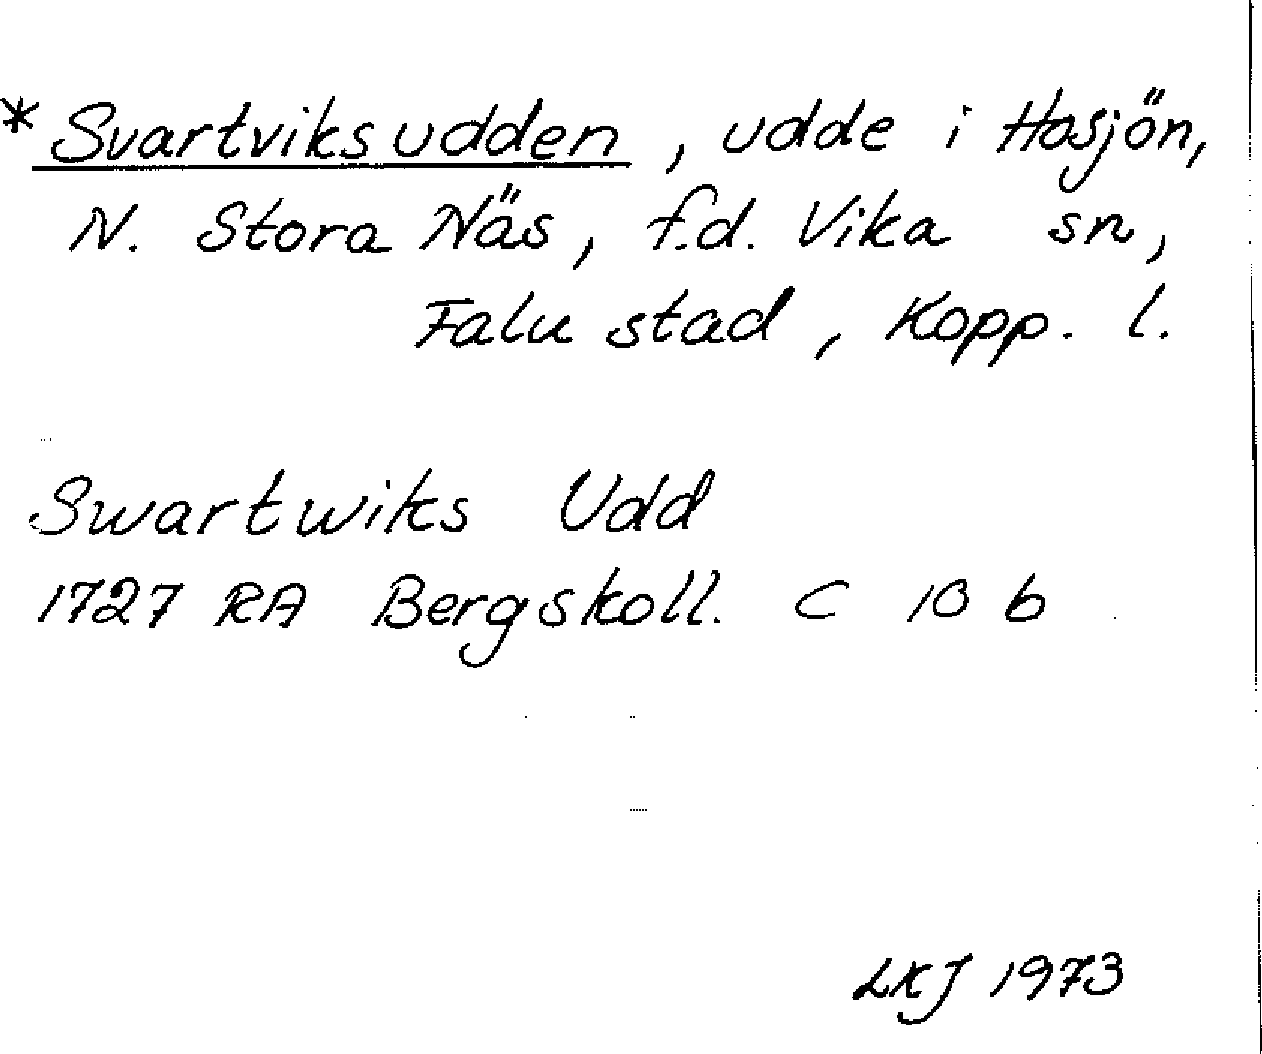 * Svartviksudden, udde i Hosjön,
N. Stora Näs, f.d. Vika sn,
Falu stad, Kopp. l.
Swartwiks Udd
1727 RA Bergskoll. C 10 b
LKJ 1973